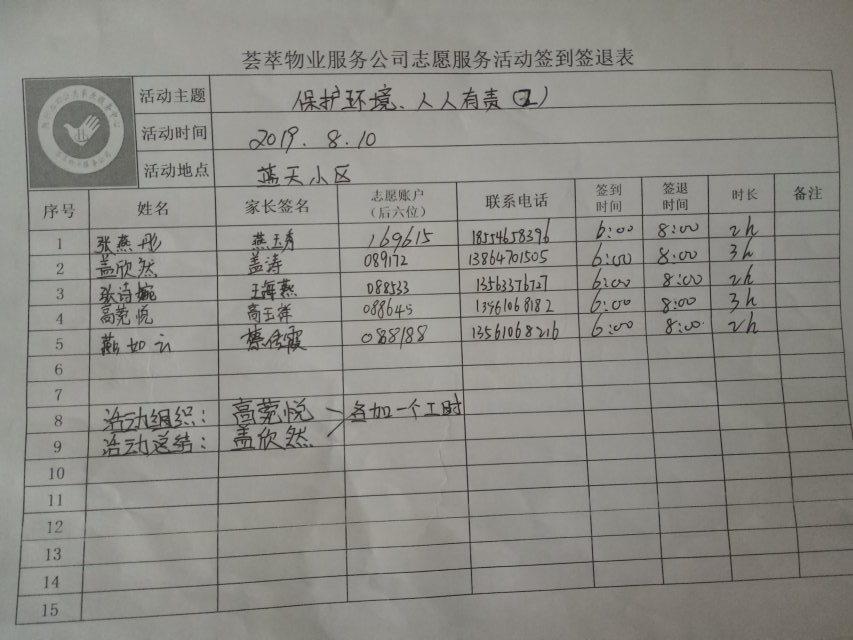 荟萃物业服务公司志愿服务活动签到签退表
活动主题 保护环境、人人有责(2)
活动时间 2019. 8. 10
活动地点 蓝天小区
序号 姓名 家长签名 志愿账户(后六位) 联系电话 签到时间 签退时间 时长 备注
1 张燕彤 燕玉秀 169615 18554658396 6:00 8:00 2h
2 盖欣然 盖涛 089172 13864701505 6:00 8:00 3h
3 张诗婉 王海燕 088533 13563376727 6:00 8:00 2h
4 高莞悦 高玉祥 088645 13561068182 6:00 8:00 3h
5 燕如云 088188 13561068216 6:00 8:00 2h
6
7
8 活动组织: 高莞悦 各加一个工时
9 活动总结: 盖欣然
10
11
12
13
14
15